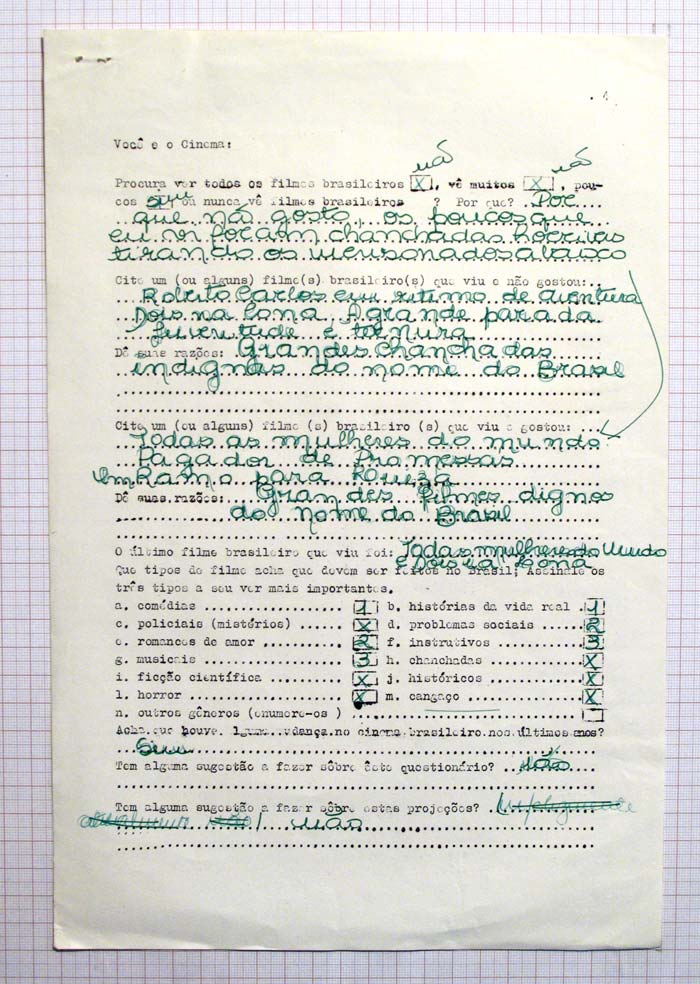 Você e o Cinema:
não não
Procura ver todos os filmes brasileiros X, vê muitos X, pou-
cos sim ou nunca vê filmes brasileiros ? Por que? Por
que não gosto, os poucos que
eu vi foram chanchadas horriveis
tirando os mensionados abaixo
Cite um (ou alguns) filme(s) brasileiro(s) que viu e não gostou:
Roberto Carlos em ritimo de aventura
Dois na Lona A grande parada
Juventude e ternura
Dê suas razões: Grandes chanchadas
indignas do nome do Brasil
Cite um (ou alguns) filme (s) brasileiro (s) que viu e gostou:
Todas as mulheres do mundo
Pagador de Promessas
Um Ramo para Luiza
Dê suas razões: Grandes filmes dignos
do nome do Brasil
O último filme brasileiro que viu foi: Todas mulheres do Mundo
e Dois na Lona
Que tipos de filme acha que devem ser feitos no Brasil; Assinale os
três tipos a seu ver mais importantes.
a. comédias 1 b. histórias da vida real 1
c. policiais (mistérios) X d. problemas sociais 2
e. romances de amor 2 f. instrutivos 3
g. musicais 3 h. chanchadas X
i. ficção científica X j. históricos X
l. horror X m. cangaço X
n. outros gêneros (enumere-os )
Acha que houve udança no cinema brasileiro nos últimos anos?
Sim
Tem alguma sugestão a fazer sôbre êste questionário? Não
Tem alguma sugestão a fazer sôbre estas projeções?
não